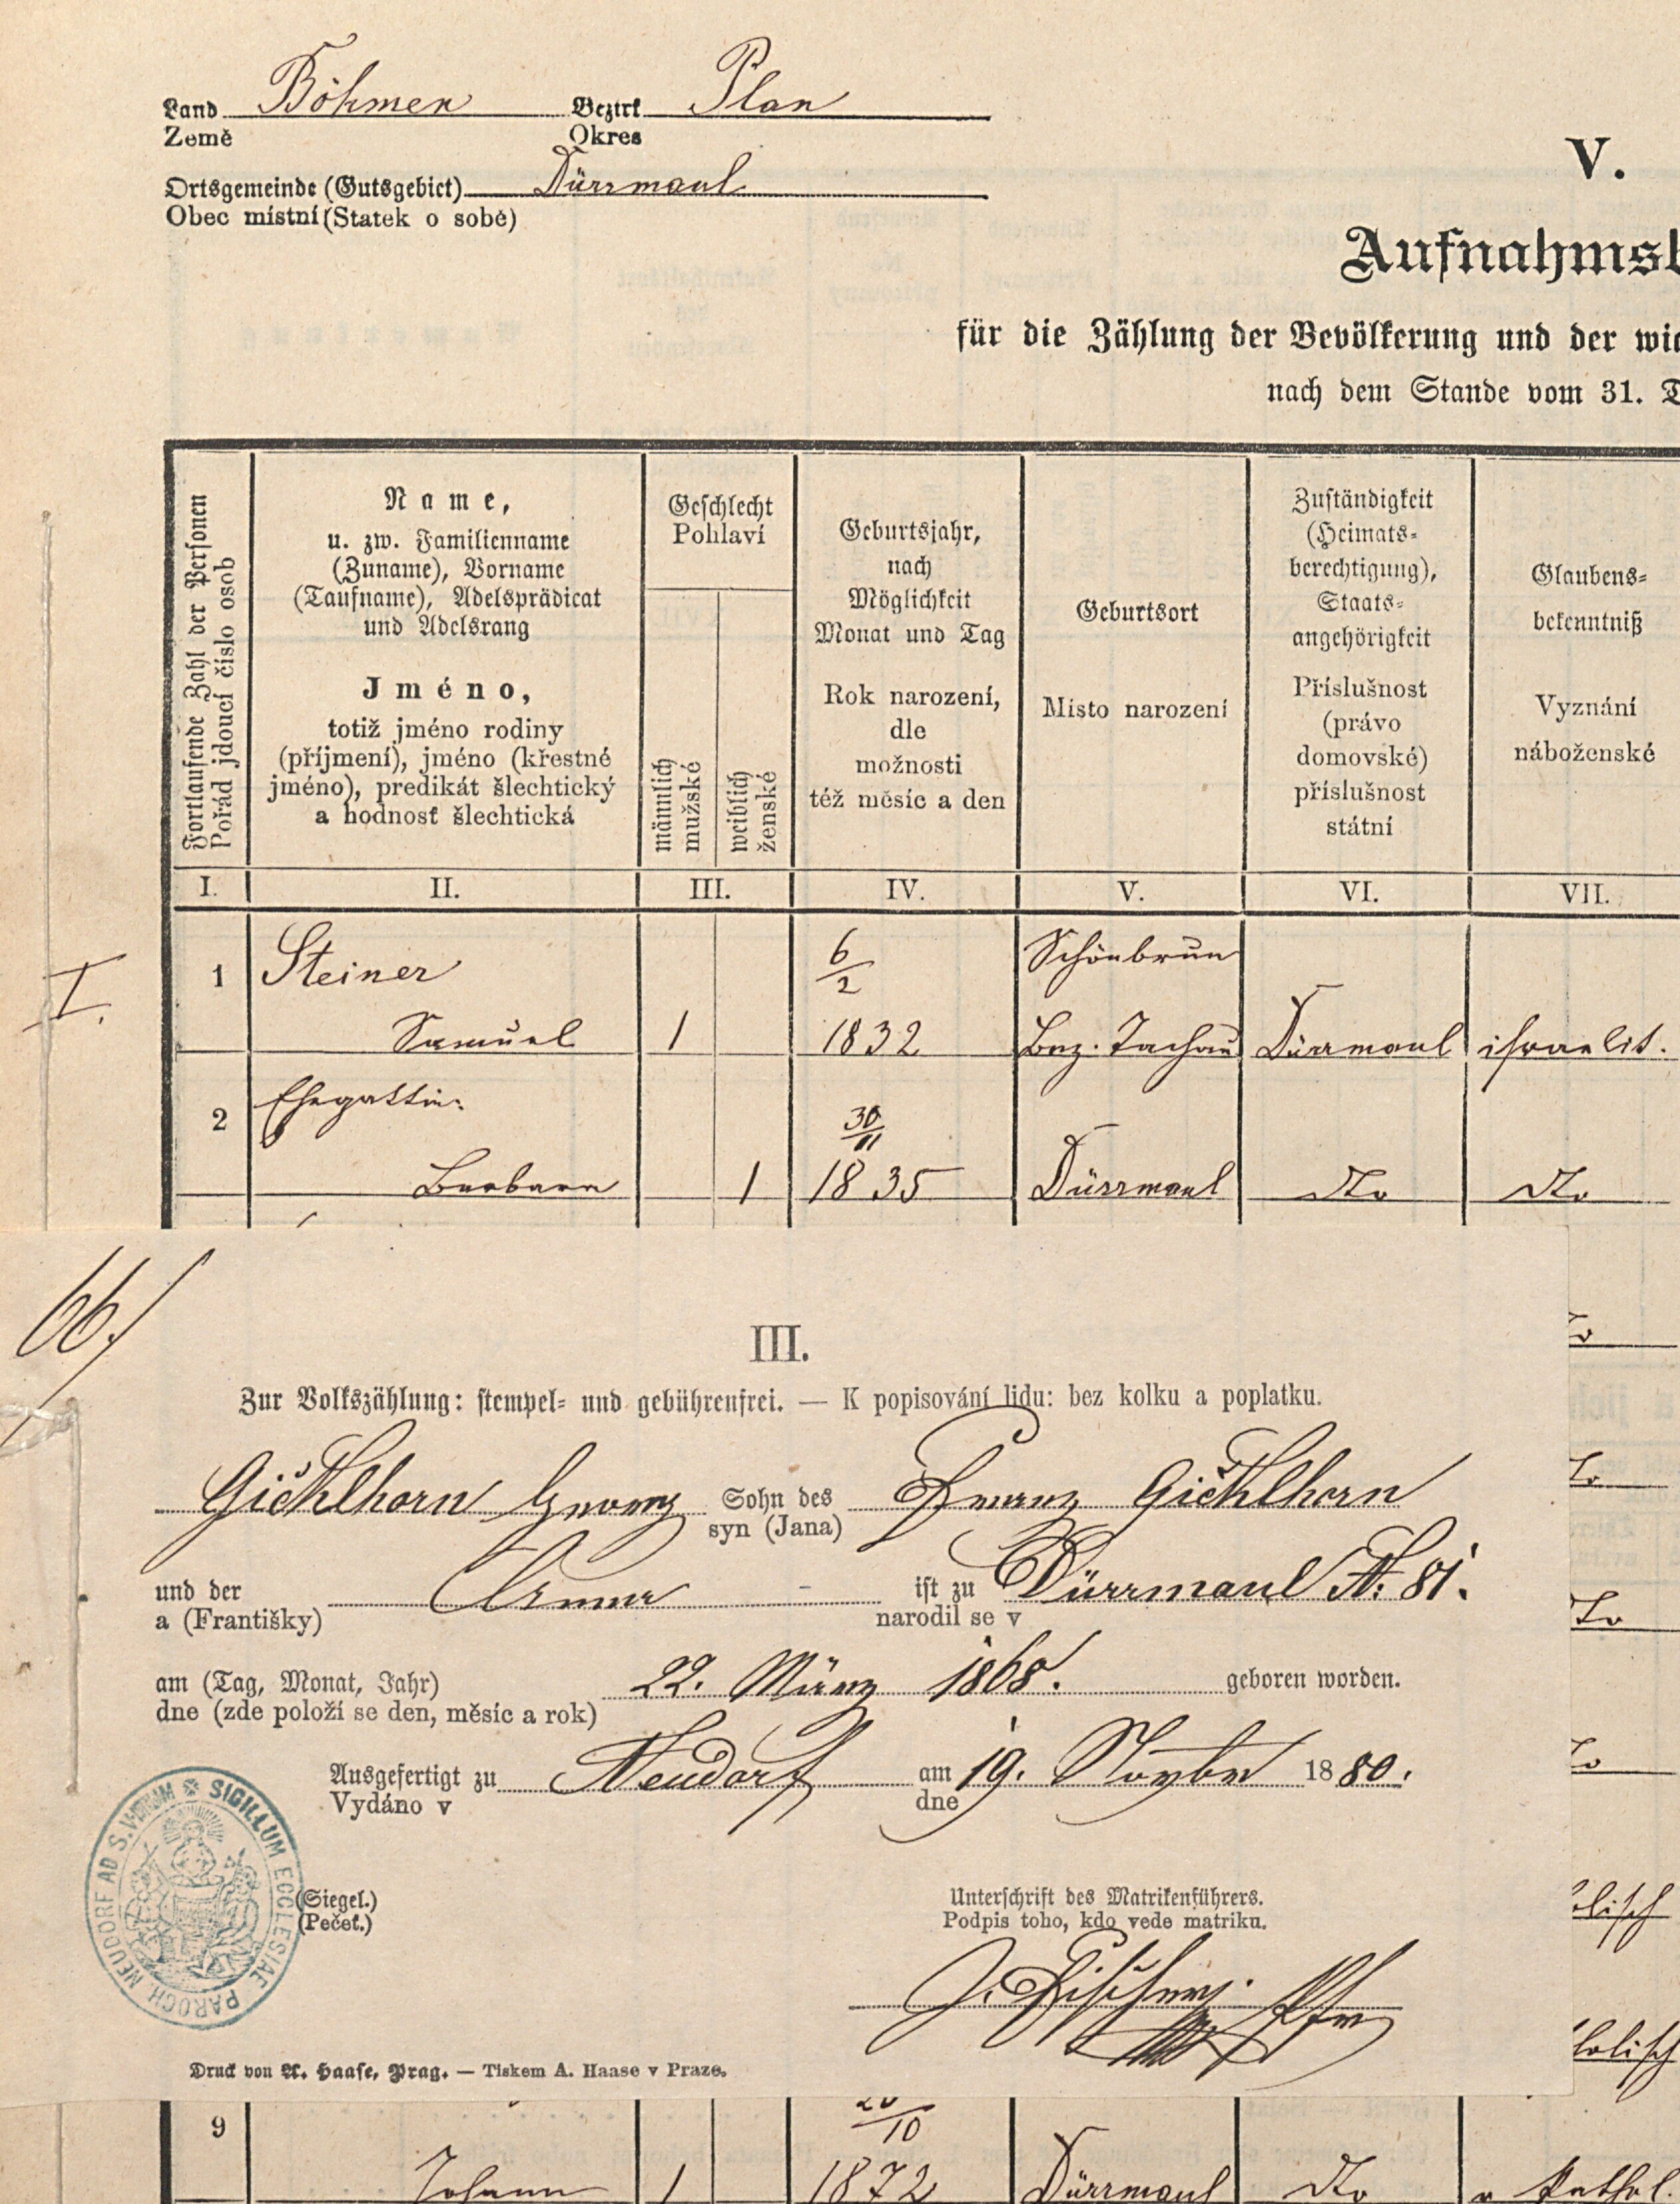 Land Böhmen Bezirk Plan
Země Okres
Ortsgemeinde (Gutsgebiet) Dürrmaul
Obec místní (Statek o sobě)
V.
Aufnahmsb
für die Zählung der Bevölkerung und der wic
nach dem Stande vom 31. D
Fortlaufende Zahl der Personen
Pořád jdoucí číslo osob
Name,
u. zw. Familienname
(Zuname), Vorname
(Taufname), Adelsprädicat
und Adelsrang
Jméno,
totiž jméno rodiny
(příjmení), jméno (křestné
jméno), predikát šlechtický
a hodnosť šlechtická
Geschlecht
Pohlaví
männlich
mužské
weiblich
ženské
Geburtsjahr,
nach
Möglichkeit
Monat und Tag
Rok narození,
dle
možnosti
též měsíc a den
Geburtsort
Místo narození
Zuständigkeit
(Heimats-
berechtigung),
Staats-
angehörigkeit
Příslušnost
(právo
domovské)
příslušnost
státní
Glaubens-
bekenntniß
Vyznání
náboženské
I. II. III. IV. V. VI. VII.
I.
1 Steiner 6/2 Schönbrun
Samuel 1 1832 Bez. Tachau Dürrmaul israelit.
2 Ehegattin 30/11
Barbara 1 1835 Dürrmaul dto dto
66/
III.
Zur Volkszählung: stempel- und gebührenfrei. — K popisování lidu: bez kolku a poplatku.
Gichlhorn Georg Sohn des Franz Gichlhorn
syn (Jana)
und der Anna ist zu Dürrmaul N. 81.
a (Františky) narodil se v
am (Tag, Monat, Jahr) 22. März 1868. geboren worden.
dne (zde položí se den, měsíc a rok)
Ausgefertigt zu Neudorf am 19. Novbr 1880.
Vydáno v dne
SIGILLUM ECCLESIAE PAROCH. NEUDORF AD S.
(Siegel.)
(Pečeť.)
Unterschrift des Matrikenführers.
Podpis toho, kdo vede matriku.
J. Fischer Pfr
Druck von A. Haase, Prag. — Tiskem A. Haase v Praze.
9 /10
Johann 1 1872 Dürrmaul dto kathol.